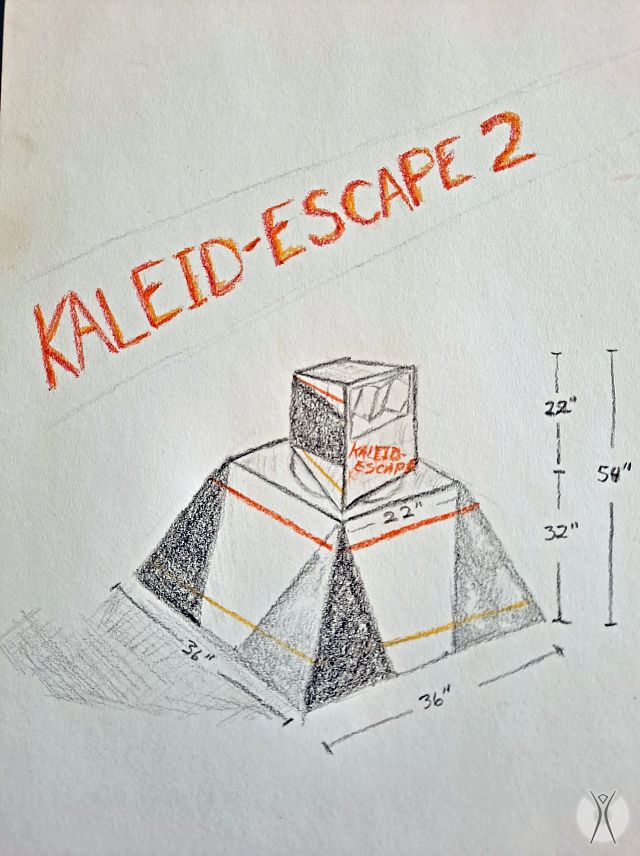 KALEID-ESCAPE 2
KALEID-
ESCAPE
22"
22"
54"
32"
36"
36"